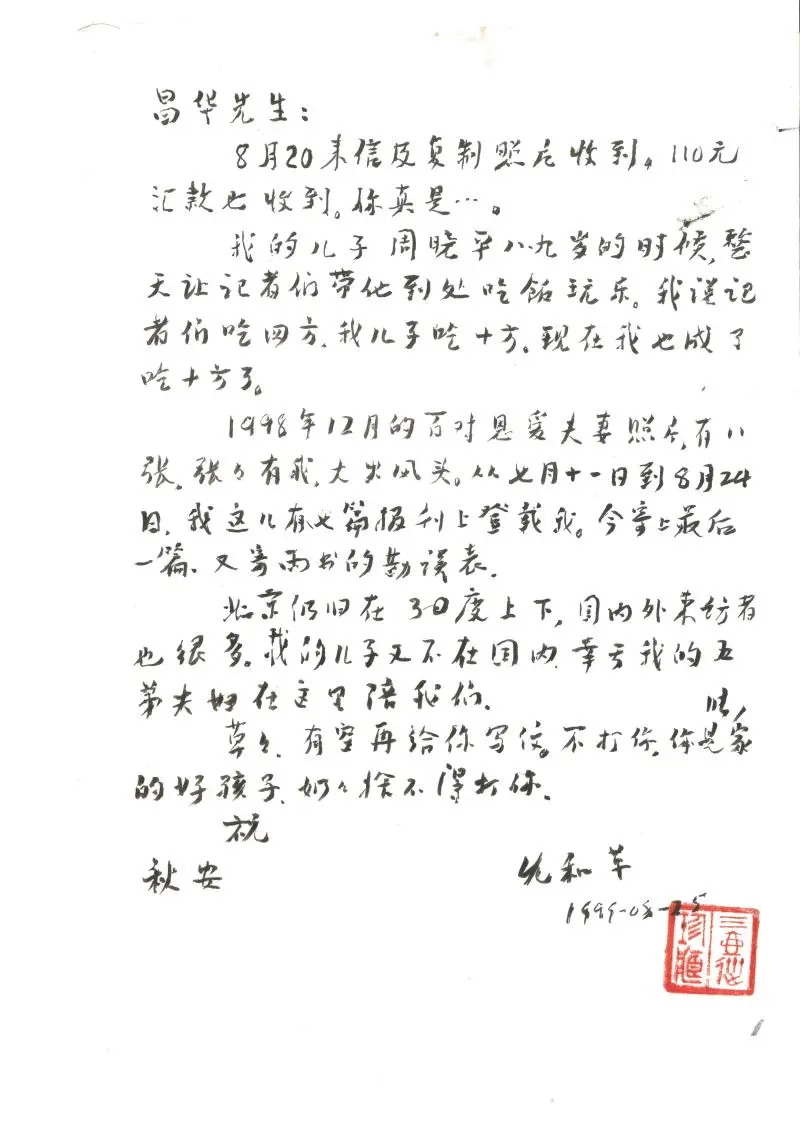 昌华先生：
8月20来信及复制照片收到。110元
汇款也收到。你真是…。
我的儿子周晓平八九岁的时候，整
天让记者们带他到处吃饭玩乐。我说记
者们吃四方，我儿子吃十方，现在我也成了
吃十方了。
1998年12月的百对恩爱夫妻照片，有八
张，张々有我，大出风头。从七月十一日到8月24
日，我这儿有七篇报刊上登载我。今寄上最后
一篇、又寄两书的勘误表。
北京仍旧在30度上下，国内外来访者
也很多。我的儿子又不在国内，幸亏我的五
弟夫妇在这里陪我们。
草々，有空再给你写信。不打你，你是家
的好孩子，奶々捨不得打你。
祝
秋安
允和草
1999-08-25